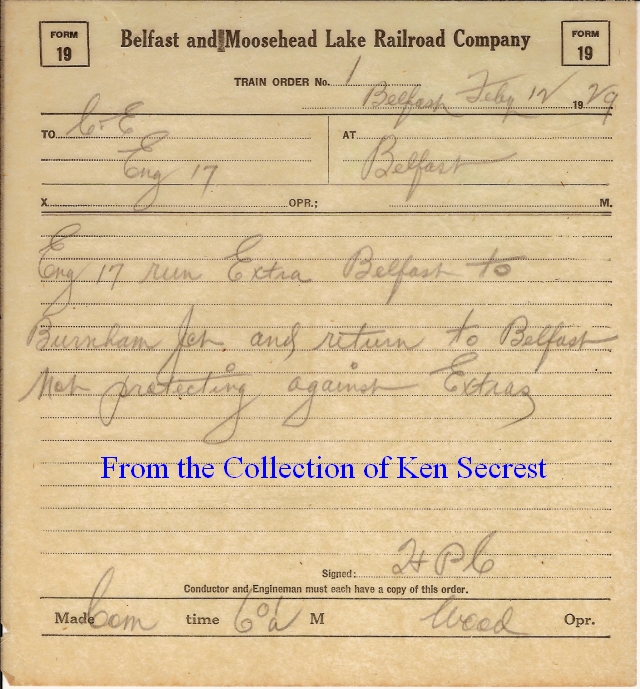 FORM 19
Belfast and Moosehead Lake Railroad Company
FORM 19
TRAIN ORDER No. 1
Belfast Feby 12 1929
TO C & E
Eng 17
AT Belfast
X OPR.; M.
Eng 17 run Extra Belfast to
Burnham Jct. and return to Belfast
Not protecting against Extras
From the Collection of Ken Secrest
Signed: H P C
Conductor and Engineman must each have a copy of this order.
Made Com time M Wood Opr.